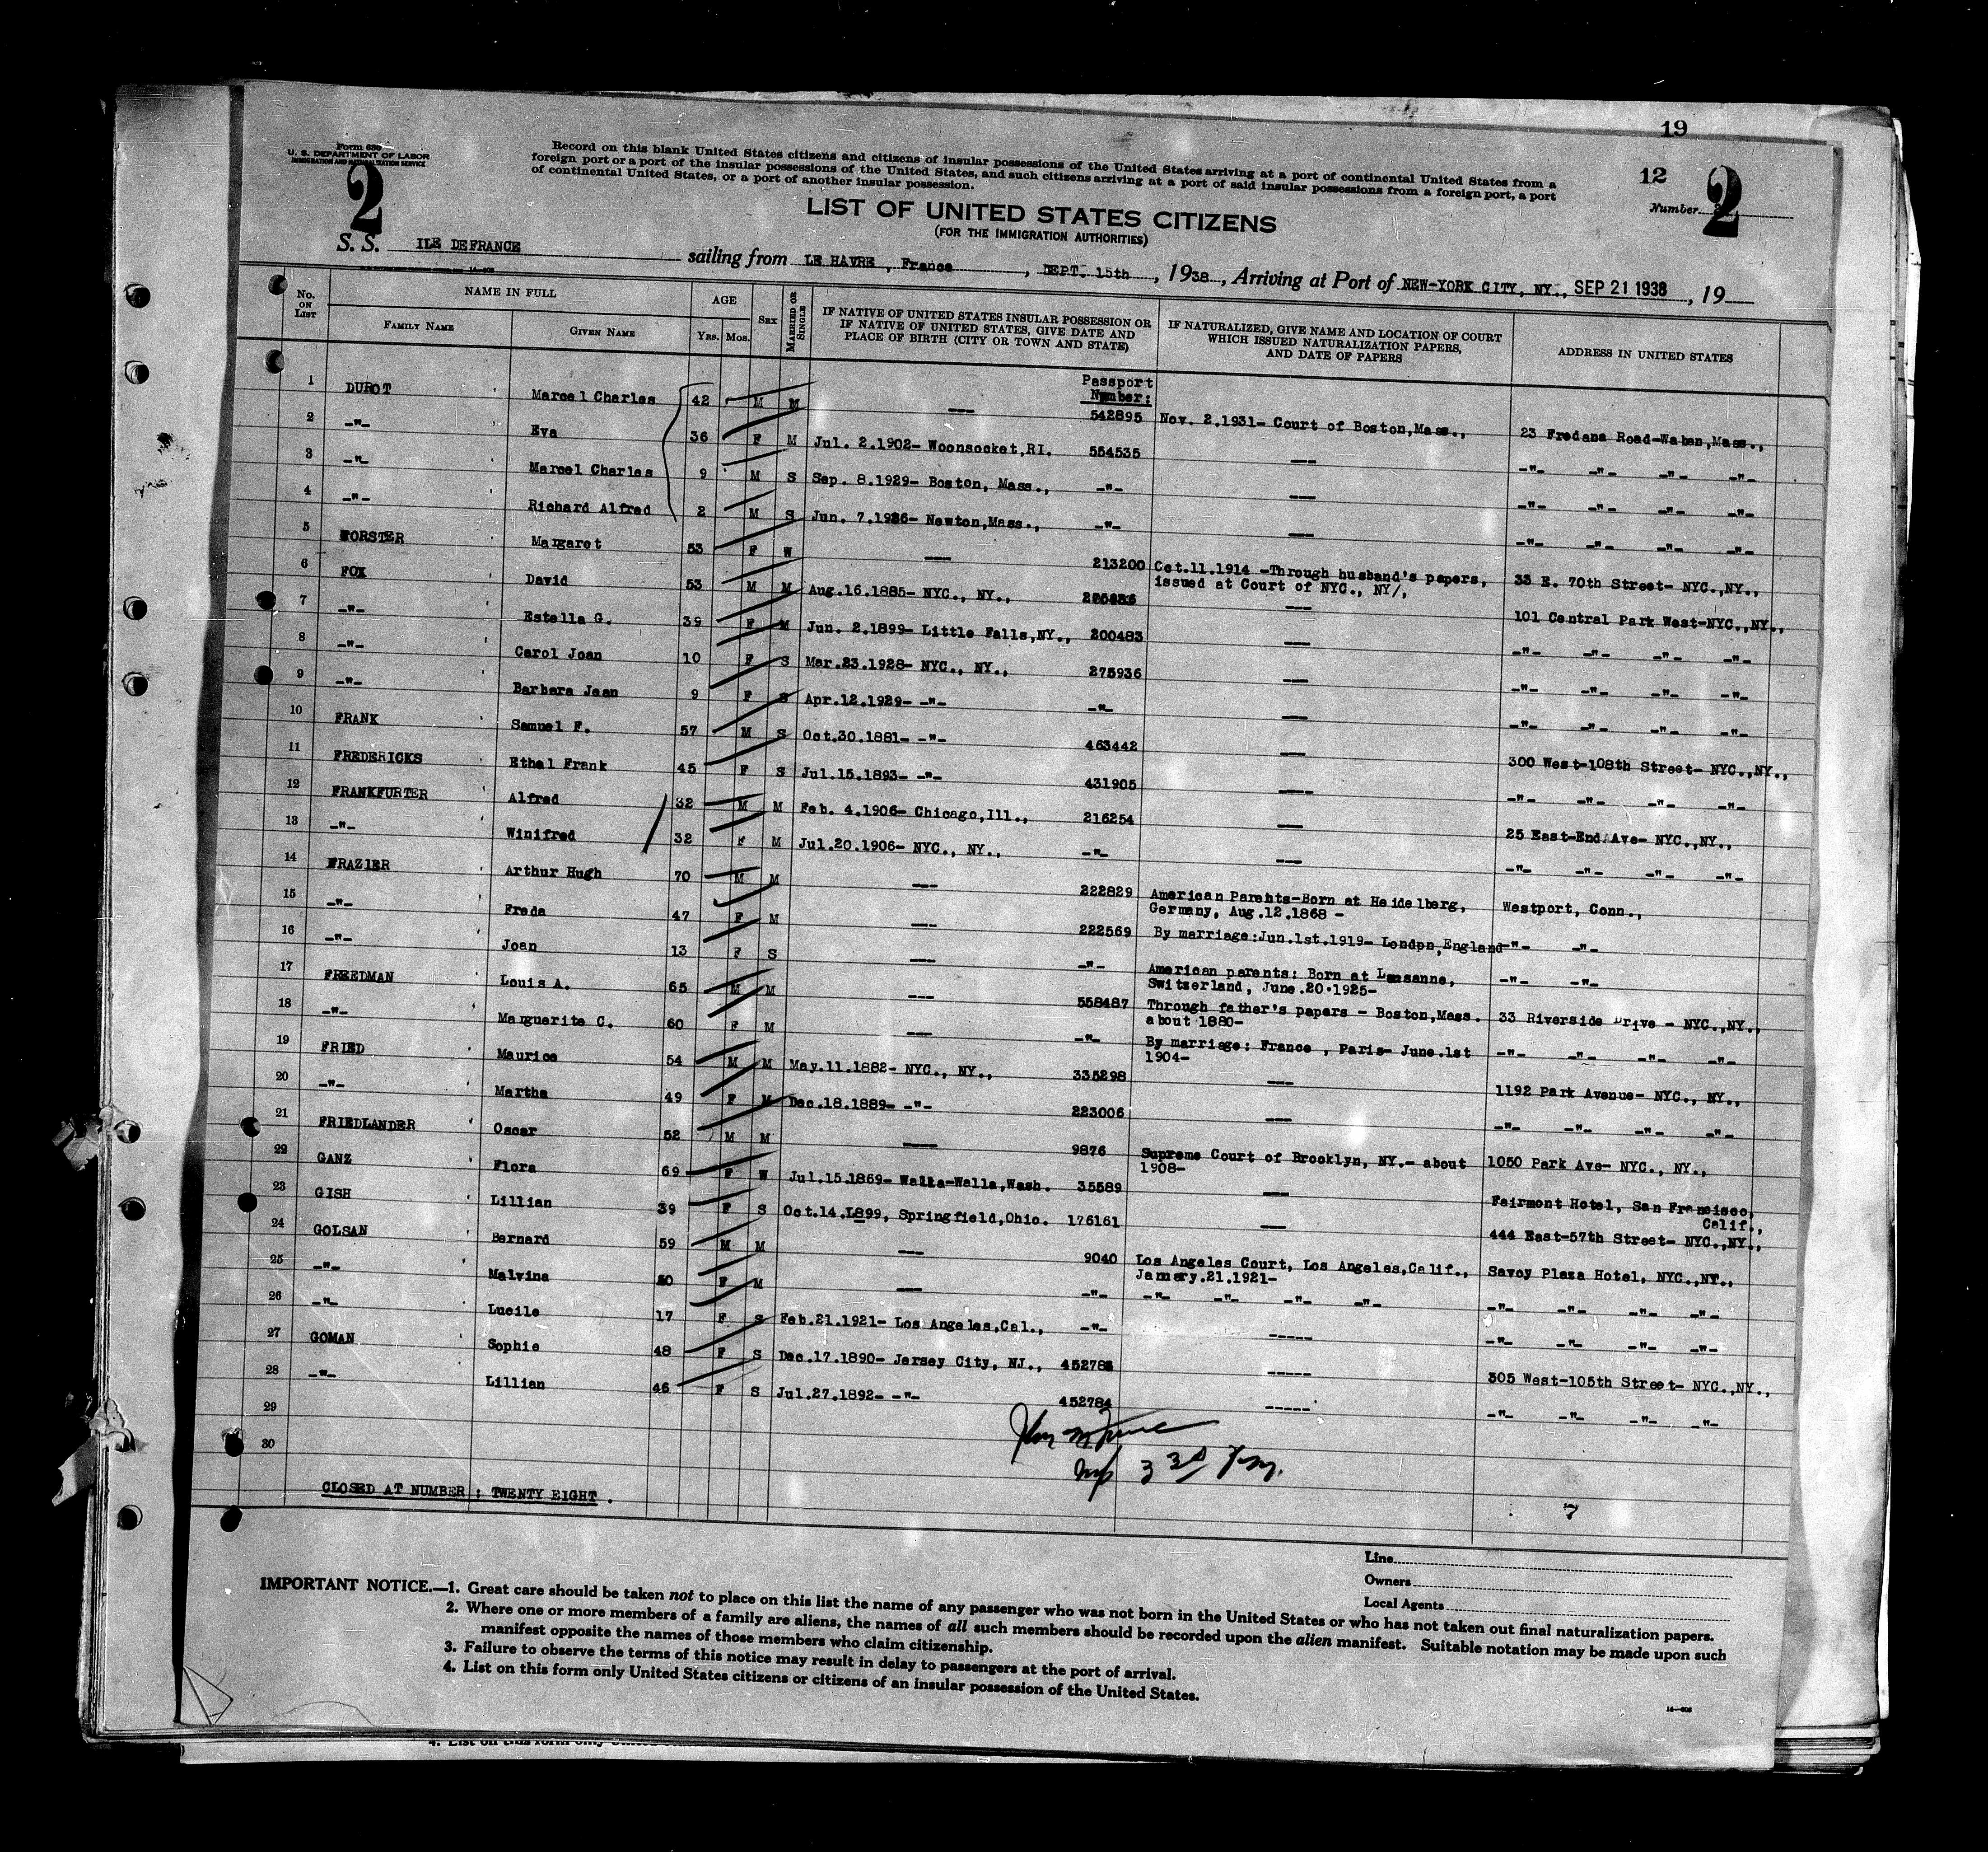 19
Form 630
U. S. DEPARTMENT OF LABOR
IMMIGRATION AND NATURALIZATION SERVICE
2
Record on this blank United States citizens and citizens of insular possessions of the United States arriving at a port of continental United States from a
foreign port or a port of the insular possessions of the United States, and such citizens arriving at a port of said insular possessions from a foreign port, a port
of continental United States, or a port of another insular possession.
12 2
Number
LIST OF UNITED STATES CITIZENS
(FOR THE IMMIGRATION AUTHORITIES)
S. S. ILE DEFRANCE sailing from LE HAVRE, France, 15th, 1938, Arriving at Port of NEW-YORK CITY, NY., SEP 21 1938, 19
No. ON LIST NAME IN FULL AGE SEX MARRIED OR SINGLE IF NATIVE OF UNITED STATES INSULAR POSSESSION OR IF NATIVE OF UNITED STATES, GIVE DATE AND PLACE OF BIRTH (CITY OR TOWN AND STATE) IF NATURALIZED, GIVE NAME AND LOCATION OF COURT WHICH ISSUED NATURALIZATION PAPERS, AND DATE OF PAPERS ADDRESS IN UNITED STATES
FAMILY NAME GIVEN NAME YRS. MOS.
Passport
Number:
1 DUROT Marcel Charles 42 M M --- 542895 Nov. 2.1931- Court of Boston,Mass., 23 Fredana Road-Waban,Mass.,
2 -"- Eva 36 F M Jul. 2.1902- Woonsocket,RI. 554535 --- -"- -"- -"- -"-
3 -"- Marcel Charles 9 M S Sep. 8.1929- Boston, Mass., -"- --- -"- -"- -"- -"-
4 -"- Richard Alfred 2 M S Jun. 7.1936- Newton,Mass., -"- --- -"- -"- -"- -"-
5 FORSTER Margaret 53 F W --- 213200 Oct.11.1914 -Through husband's papers, 33 E. 70th Street- NYC.,NY.,
issued at Court of NYC., NY/,
6 FOX David 53 M M Aug.16.1885- NYC., NY., --- 101 Central Park West-NYC.,NY.,
7 -"- Estella G. 39 F M Jun. 2.1899- Little Falls,NY., 200483 --- -"- -"- -"- -"-
8 -"- Carol Joan 10 F S Mar.23.1928- NYC., NY., 275936 --- -"- -"- -"- -"-
9 -"- Barbara Jean 9 F S Apr.12.1929- -"- -"- --- -"- -"- -"- -"-
10 FRANK Samuel F. 57 M S Oct.30.1881- -"- 463442 --- 300 West-108th Street- NYC.,NY.,
11 FREDERICKS Ethel Frank 45 F S Jul.15.1893- -"- 431905 --- -"- -"- -"- -"-
12 FRANKFURTER Alfred 32 M M Feb. 4.1906- Chicago,Ill., 216254 --- 25 East-End Ave- NYC.,NY.,
13 -"- Winifred 32 F M Jul.20.1906- NYC., NY., -"- --- -"- -"- -"- -"-
14 FRAZIER Arthur Hugh 70 M M --- 222829 American Parents-Born at Heidelberg, Westport, Conn.,
Germany, Aug.12.1868 -
15 -"- Freda 47 F M --- 222569 By marriage:Jun.1st.1919- London,England -"- -"-
16 -"- Joan 13 F S --- -"- American parents: Born at Lausanne, -"- -"-
Switzerland, June.20.1925-
17 FREEDMAN Louis A. 65 M M --- 558487 Through father's papers - Boston,Mass. 33 Riverside Drive - NYC.,NY.,
about 1880-
18 -"- Marguerite C. 60 F M --- -"- By marriage: France , Paris- June.1st -"- -"- -"- -"-
1904-
19 FRIED Maurice 54 M M May.11.1882- NYC., NY., 335298 --- 1192 Park Avenue- NYC., NY.,
20 -"- Martha 49 F M Dec.18.1889- -"- 223006 --- -"- -"- -"- -"-
21 FRIEDLANDER Oscar 52 M M ---- 9876 Supreme Court of Brooklyn, NY.- about 1050 Park Ave- NYC., NY.,
1908-
22 GANZ Flora 69 F W Jul.15.1869- Walla-Walla,Wash. 35589 --- Fairmont Hotel, San Francisco,
Calif.,
23 GISH Lillian 39 F S Oct.14.1899, Springfield,Ohio. 176161 --- 444 East-57th Street- NYC.,NY.,
24 GOLSAN Bernard 59 M M --- 9040 Los Angeles Court, Los Angeles,Calif., Savoy Plaza Hotel, NYC.,NY.,
January.21.1921-
25 -"- Malvina F M --- -"- -"- -"- -"- -"- -"- -"- -"- -"-
26 -"- Lucile 17 F S Feb.21.1921- Los Angeles,Cal., -"- ----- -"- -"- -"- -"-
27 GOMAN Sophie 48 F S Dec.17.1890- Jersey City, NJ., ----- 305 West-105th Street- NYC.,NY.,
28 -"- Lillian 46 F S Jul.27.1892- -"- 452784 ----- -"- -"- -"- -"-
29
30
CLOSED AT NUMBER : TWENTY EIGHT .
7
Line
Owners
Local Agents
IMPORTANT NOTICE.—1. Great care should be taken not to place on this list the name of any passenger who was not born in the United States or who has not taken out final naturalization papers.
2. Where one or more members of a family are aliens, the names of all such members should be recorded upon the alien manifest. Suitable notation may be made upon such
manifest opposite the names of those members who claim citizenship.
3. Failure to observe the terms of this notice may result in delay to passengers at the port of arrival.
4. List on this form only United States citizens or citizens of an insular possession of the United States.